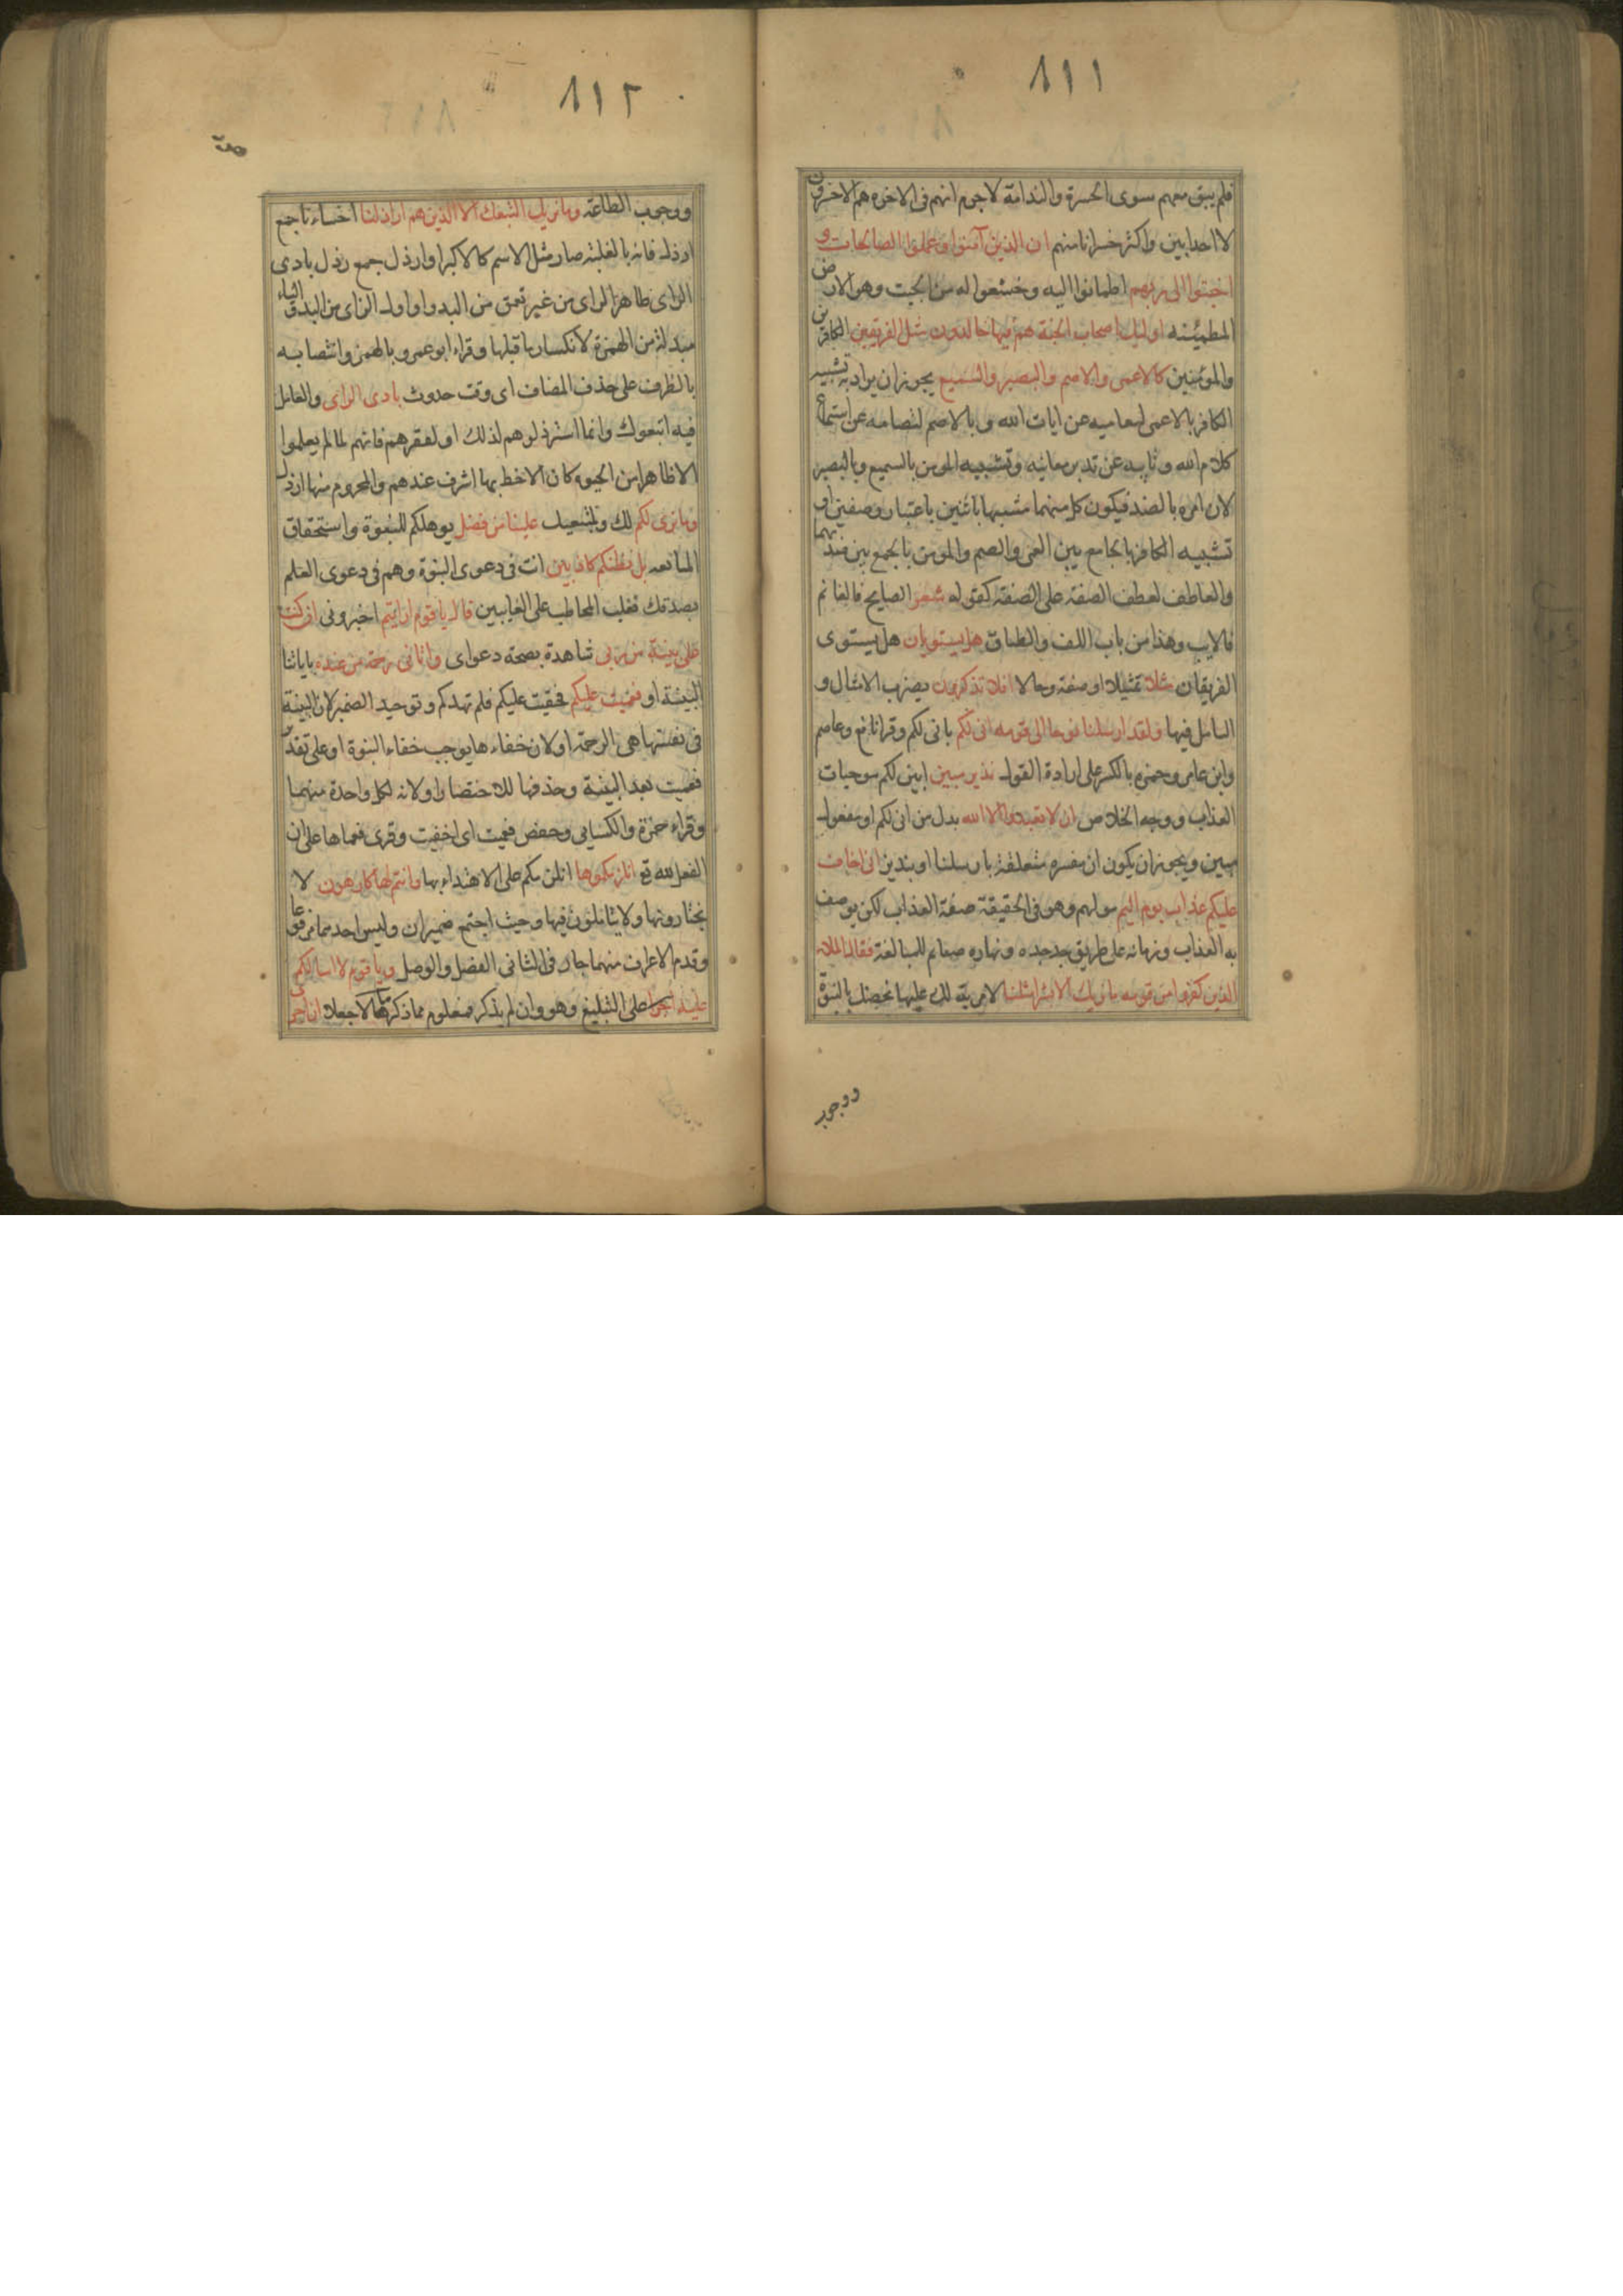 ٨١١
فلم يبق معهم سوى الحسرة والندامة لا جرم انهم فى الاخره هم الاخسرون
لا احد ابين واكثر خسرانا منهم ان الذين آمنوا وعملوا الصالحات و
اخبتوا الى ربهم اطمانوا اليه وخشعوا له من الخبت وهو الارض
المطمئنه اوليك اصحاب الجنة هم فيها خالدون مثل الفريقين الكافرين
والمومنين كالاعمى والاصم والبصير والسميع يجوز ان يراد به تشبيه
الكافر بالاعمى لتعاميه عن ايات الله و بالاصم لتصامه عن استماع
كلام الله و تابيه عن تدبر معانيه وتشبيه المومن بالسميع وبالبصير
لان امره بالضد فيكون كل منهما مشبها باثنين باعتبار وصفين او
تشبيه الكافر بالجامع بين العمى والصم والمومن بالجمع بين ضديهما
والعاطف لعطف الصفة على الصفة كقوله شعر الصابح فالغانم
فالايب وهذا من باب اللف والطباق هل يستويان هل يستوى
الفريقان مثلا تمثيلا او صفة وحالا افلا تذكرون بضرب الامثال و
التامل فيها ولقد ارسلنا نوحا الى قومه انى لكم بانى لكم وقرا نافع وعاصم
وابن عامر وحمزه بالكسر على ارادة القول نذير مبين ابين لكم موجبات
العذاب ووجه الخلاص ان لا تعبدوا الا الله بدل من انى لكم او مفعول
مبين ويجوز ان يكون ان مفسره متعلقة بارسلنا او بنذير انى اخاف
عليكم عذاب يوم اليم مولم وهو فى الحقيقة صفة العذاب لكن يوصف
به العذاب وزمانه على طريق جد جده ونهاره صايم للمبالغة فقال الملاء
الذين كفروا من قومه ما نريك الا بشرا مثلنا لا مزية لك علينا تخصك بالنبوة
ووجوب
٨١٢
ووجوب الطاعة وما نريك اتبعك الا الذين هم اراذلنا اخساءنا جمع
ارذل فانه بالغلبة صار مثل الاسم كالاكبر او ارذل جمع رذل بادى
الراى ظاهر الراى من غير تعمق من البدو او اول الراى من البدو والياء
مبدلة من الهمزة لانكسار ما قبلها وقراء ابو عمرو بالهمز وانتصابه
بالظرف على حذف المضاف اى وقت حدوث بادى الراى والعامل
فيه اتبعوك وانما استرذلوهم لذلك او لفقرهم فانهم لما لم يعلموا
الا ظاهرا من الحيوه كان الاخط بها اشرف عندهم والمحروم منها ارذل
وما نرى لكم لك ولمتبعيك علينا من فضل يوهلكم للنبوة واستحقاق
المتابعه بل نظنكم كاذبين انت فى دعوى النبوة وهم فى دعوى العلم
بصدقك فغلب المخاطب على الغايبين قال يا قوم ارايتم اخبرونى ان كنت
على بينة من ربى شاهدة بصحة دعواى واتانى رحمة من عنده باياتنا
البينة او فعميت عليكم فخفيت عليكم فلم تهدكم وتوحيد الضمير لان البينة
فى نفسها هى الرحمة او لان خفاءها يوجب خفاء النبوة او على تقدير
فعميت بعد البينة وحذفها للاختصار او لانه لكل واحدة منهما
وقراء حمزة والكسايى وحفص فعميت اى اخفيت وقرى فعماها على ان
الفعل لله تع انلزمكموها انلزمكم على الاهتداء بها وانتم لها كارهون لا
تختارونها ولا تتاملون فيها وحيث اجتمع ضميران وليس احدهما مرفوعا
وقدم الاعرف منهما جاز فى الثانى الفصل والوصل ويا قوم لا اسالكم
عليه اجرا على التبليغ وهو وان لم يذكر فمعلوم مما ذكر مالا جعلا ان اجرى